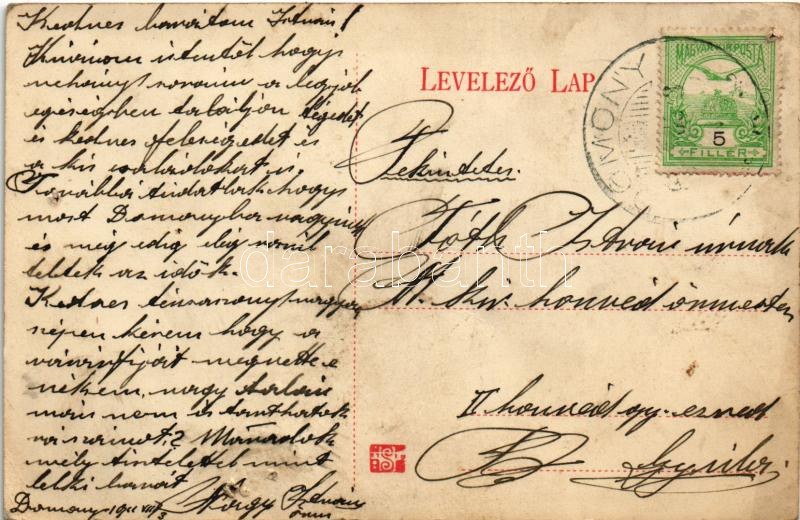 Kedves barátom István!
Kivánom istentől hogy
nehány sorain a legjob
egéségben találjon tégedet
és kedves feleségedet és
a kis családokat is.
Továbbá tudatlak hogy
most Domonyba vagyunk
és még edig elég
teltek az idők.
Kedves
szépen kérem hogy a
megvette e
nékem, vagy talán
már nem is tarthatok
számot? Maradok
mély tisztelettel mint
lelki barát
Nagy István
Domony 1911 VIII/3
LEVELEZŐ LAP
MAGYAR KIR. POSTA
5
FILLÉR
DOMONY
Tekintetes
Tóth István úrnak
M. kir. honvéd őrmester
II honvéd gy. ezred
Gyula
darabanth